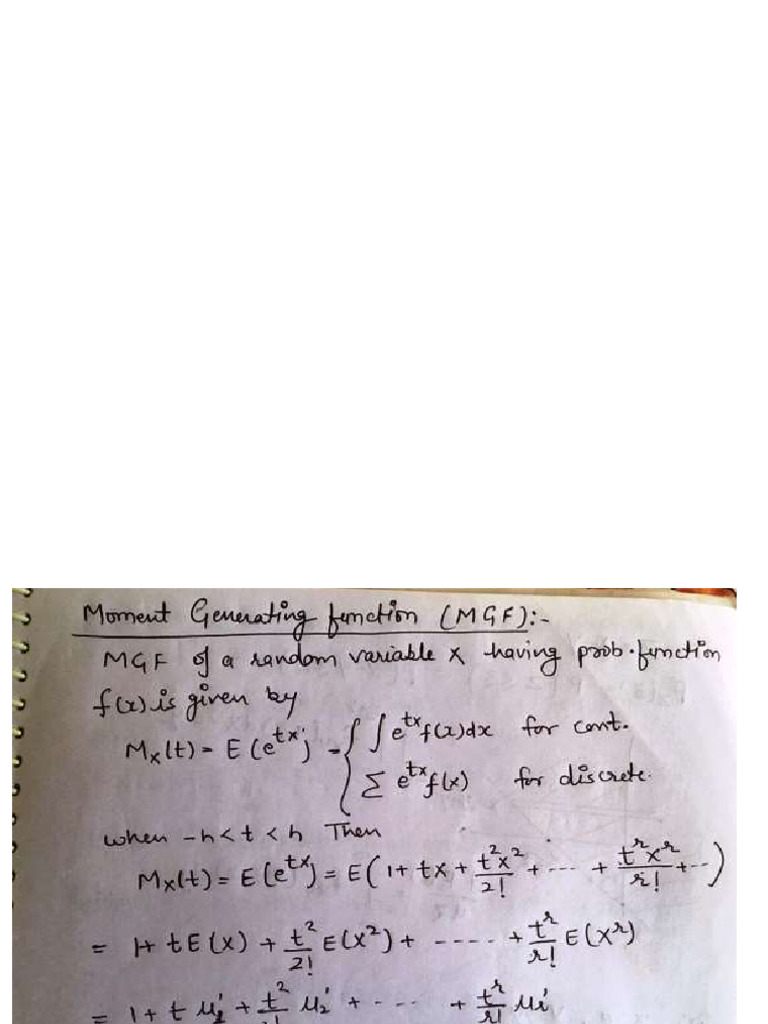 Moment Generating function (MGF):-
MGF of a random variable X having prob. function
f(x) is given by
Mx(t) = E(e^tx) = { ∫ e^tx f(x)dx for cont.
∑ e^tx f(x) for discrete.
when -h < t < h Then
Mx(t) = E(e^tx) = E(1 + tx + t²x²/2! + ---- + t^r x^r/r! + --)
= 1 + tE(x) + t²/2! E(x²) + ---- + t^r/r! E(x^r)
= 1 + t μ₁' + t²/2! μ₂' + - - - - + t^r/r! μr'